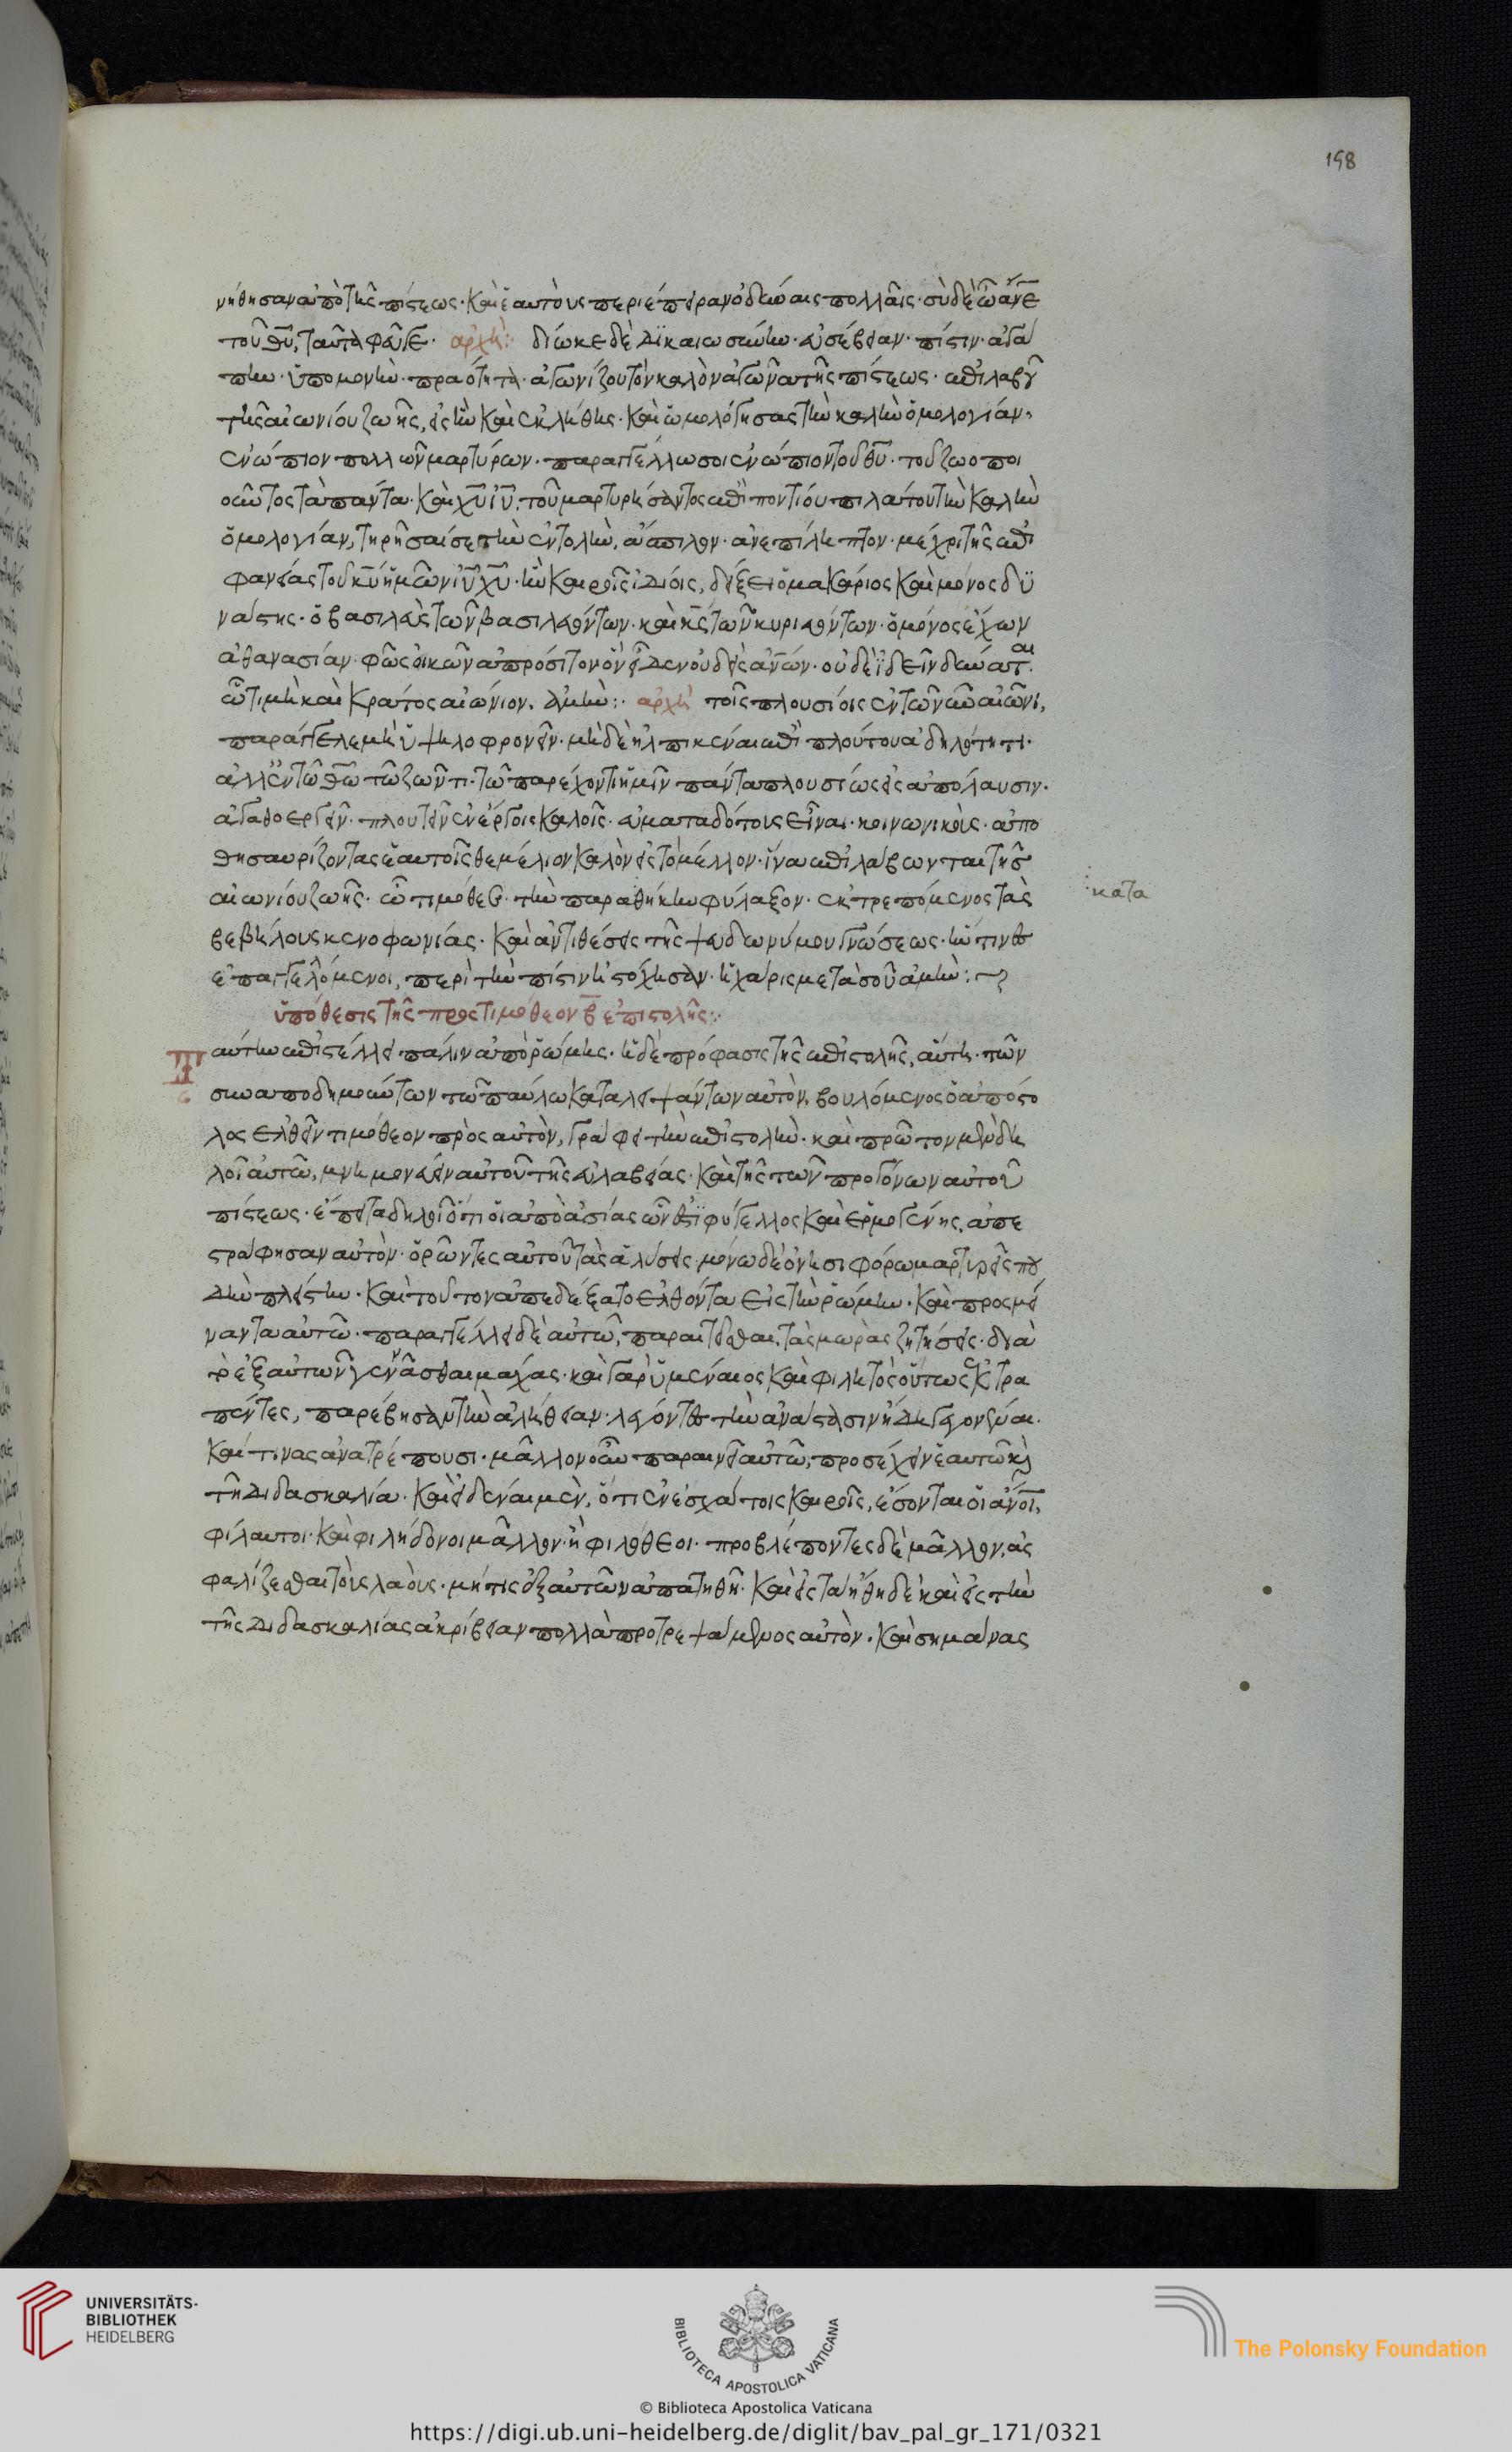 158
νήθησαν ἀπὸ τῆς πίστεως· καὶ ἑαυτοὺς περιέπειραν ὀδύναις πολλαῖς· σὺ δὲ ὦ ἄνε
τοῦ θυ, ταῦτα φεῦγε· αρχὴ: δίωκε δὲ δικαιωσύνην· εὐσέβειαν· πίστιν· ἀγά
πην· ὑπομονὴν· πραότητα· ἀγωνίζου τὸν καλὸν ἀγῶνα τῆς πίστεως· ἐπιλαβοῦ
τῆς αἰωνίου ζωῆς, εἰς ἣν καὶ ἐκλήθης· καὶ ὡμολόγησας τὴν καλὴν ὁμολογίαν,
ἐνώπιον πολλῶν μαρτύρων· παραγγέλλω σοι ἐνώπιον τοῦ θυ· τοῦ ζωοποι
οῦντος τὰ πάντα· καὶ χυ ιυ, τοῦ μαρτυρήσαντος ἐπὶ ποντίου πιλάτου τὴν καλὴν
ὁμολογίαν, τηρῆσαί σε τὴν ἐντολὴν, ἄσπιλον· ἀνεπίληπτον· μέχρι τῆς ἐπι
φανείας τοῦ κυ ἡμῶν ιυ χυ· ἣν καιροῖς ἰδίοις, δείξει ὁ μακάριος καὶ μόνος δυ
νάστης· ὁ βασιλεὺς τῶν βασιλευόντων· καὶ κς τῶν κυριευόντων· ὁ μόνος ἔχων
ἀθανασίαν· φῶς οἰκῶν ἀπρόσιτον ὃν εἶδεν οὐδεὶς ἀνων· οὐδὲ ἰδεῖν δύναται·
ᾧ τιμὴ καὶ κράτος αἰώνιον, ἀμὴν: αρχὴ τοῖς πλουσίοις ἐν τῷ νῦν αἰῶνι,
παράγγελε μὴ ὑψηλοφρονεῖν· μὴ δὲ ἠλπικέναι ἐπὶ πλούτου ἀδηλότητι·
ἀλλ' ἐν τῷ θω τῷ ζῶντι· τῷ παρέχοντι ἡμῖν πάντα πλουσίως εἰς ἀπόλαυσιν·
ἀγαθοεργεῖν· πλουτεῖν ἐν ἔργοις καλοῖς· εὐμεταδότους εἶναι· κοινωνικούς· ἀπο
θησαυρίζοντας ἑαυτοῖς θεμέλιον καλὸν εἰς τὸ μέλλον· ἵνα ἐπιλάβωνται τῆς
αἰωνίου ζωῆς· ὦ τιμόθεε· τὴν παραθήκην φύλαξον· ἐκτρεπόμενος τὰς
κατα
βεβήλους κενοφωνίας· καὶ ἀντιθέσεις τῆς ψευδωνύμου γνώσεως· ἥν τινες
ἐπαγγελόμενοι, περὶ τὴν πίστιν ἠστόχησαν· ἡ χάρις μετὰ σοῦ ἀμὴν:
ὑπόθεσις τῆς προς τιμόθεον β ἐπιστολῆς:
Ταύτην ἐπιστέλλει πάλιν ἀπὸ ῥώμης· ἡ δὲ πρόφασις τῆς ἐπιστολῆς, αὕτη· τῶν
συναποδημούντων τῷ παύλω καταλειψάντων αὐτὸν, βουλόμενος ὁ ἀπόστο
λος ἐλθεῖν τιμόθεον πρὸς αὐτὸν, γράφει τὴν ἐπιστολὴν· καὶ πρῶτον μὲν δη
λοῖ αὐτῷ, μνημονεύειν αὐτοῦ τῆς εὐλαβείας· καὶ τῆς τῶν προγόνων αὐτοῦ
πίστεως· ἔπειτα δηλοῖ ὅτι οἱ ἀπὸ ἀσίας ὧν ἐστι φύγελλος καὶ ἑρμογένης, ἀπε
στράφησαν αὐτὸν· ὁρῶντες αὐτοῦ τὰς ἁλύσεις· μόνω δὲ ὀνησιφόρω μαρτυρεῖ σπου
δὴν πλείστην· καὶ τοῦτον ἀπεδέξατο ἐλθόντα εἰς τὴν ῥώμην· καὶ προσμεί
ναντα αὐτῷ· παραγγέλλει δὲ αὐτῷ, παραιτεῖσθαι, τὰς μωρὰς ζητήσεις· διὰ
τὸ ἐξ αὐτῶν γεννᾶσθαι μάχας· καὶ γὰρ ὑμέναιος καὶ φιλητὸς οὕτως ἐκτρα
πέντες, παρέβησαν τὴν ἀλήθειαν· λέγοντες τὴν ἀνάστασιν ἤδη γεγονέναι·
καί τινας ἀνατρέπουσι· μᾶλλον οὖν παραινεῖ αὐτῷ, προσέχειν ἑαυτῷ καὶ
τῆ διδασκαλία· καὶ εἰδέναι μὲν, ὅτι ἐν ἐσχάτοις καιροῖς, ἔσονται οἱ ἄνοι,
φίλαυτοι· καὶ φιλήδονοι μᾶλλον· ἢ φιλόθεοι· προβλέποντες δὲ μᾶλλον, ἀς
φαλίζεσθαι τοὺς λαούς· μή τις ἐξ αὐτῶν ἀπατηθῆ· καὶ εἰς τὰ ἤθη δὲ καὶ εἰς τὴν
τῆς διδασκαλίας ἀκρίβειαν πολλὰ προτρεψάμενος αὐτὸν· καὶ σημάνας
UNIVERSITÄTS-
BIBLIOTHEK
HEIDELBERG
BIBLIOTECA APOSTOLICA VATICANA
The Polonsky Foundation
© Biblioteca Apostolica Vaticana
https://digi.ub.uni-heidelberg.de/diglit/bav_pal_gr_171/0321